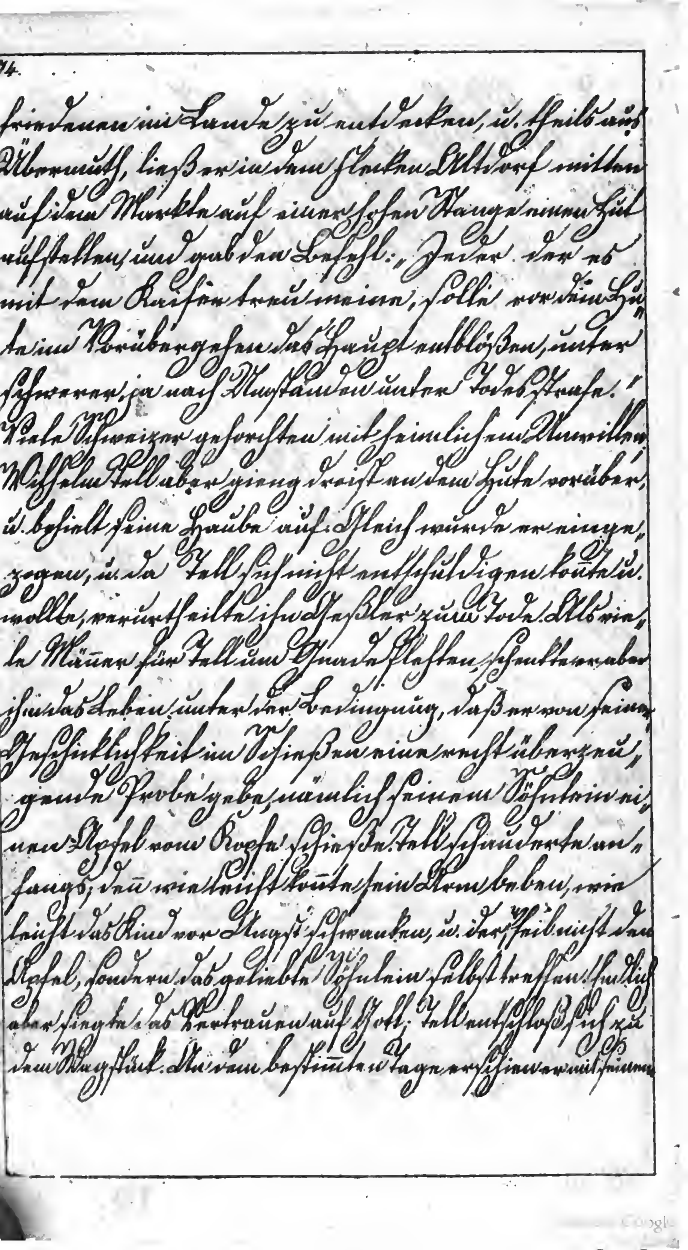 74.
friedenen im Lande zu entdecken, u. theils aus
Übermuth, ließ er in dem Flecken Altdorf mitten
auf dem Markte auf einer hohen Stange einen Hut
aufstellen, und gab den Befehl: „Jeder der es
mit dem Kaiser treu meine, solle vor dem Hu„
te im Vorübergehen das Haupt entblößen, unter
schwerer, ja nach Umständen unter Todesstrafe."
Viele Schweizer gehorchten mit heimlichem Unwillen,
Wilhelm Tell aber gieng dreist an dem Hute vorüber,
u. behielt seine Haube auf. Gleich wurde er einge„
zogen, u. da Tell sich nicht entschuldigen kon̄te u.
wollte, verurtheilte ihn Geßler zum Tode. Als vie„
le Män̄er für Tell um Gnade flehten, schenkte er aber
ihm das Leben unter der Bedingung, daß er von seiner
Geschicklichkeit im Schießen eine recht überzeu„
gende Probe gebe, nämlich seinem Söhnlein ei„
nen Apfel vom Kopfe schieße. Tell schauderte an„
fangs; den̄ wie leicht kon̄te sein Arm beben, wie
leicht das Kind vor Angst schwanken, u. der Pfeil nicht den
Apfel, sondern das geliebte Söhnlein selbst treffen. Endlich
aber siegte das Vertrauen auf Gott; Tell entschloß sich zu
dem Wagstück. An dem bestim̄ten Tage erschien er mit seinem
Google